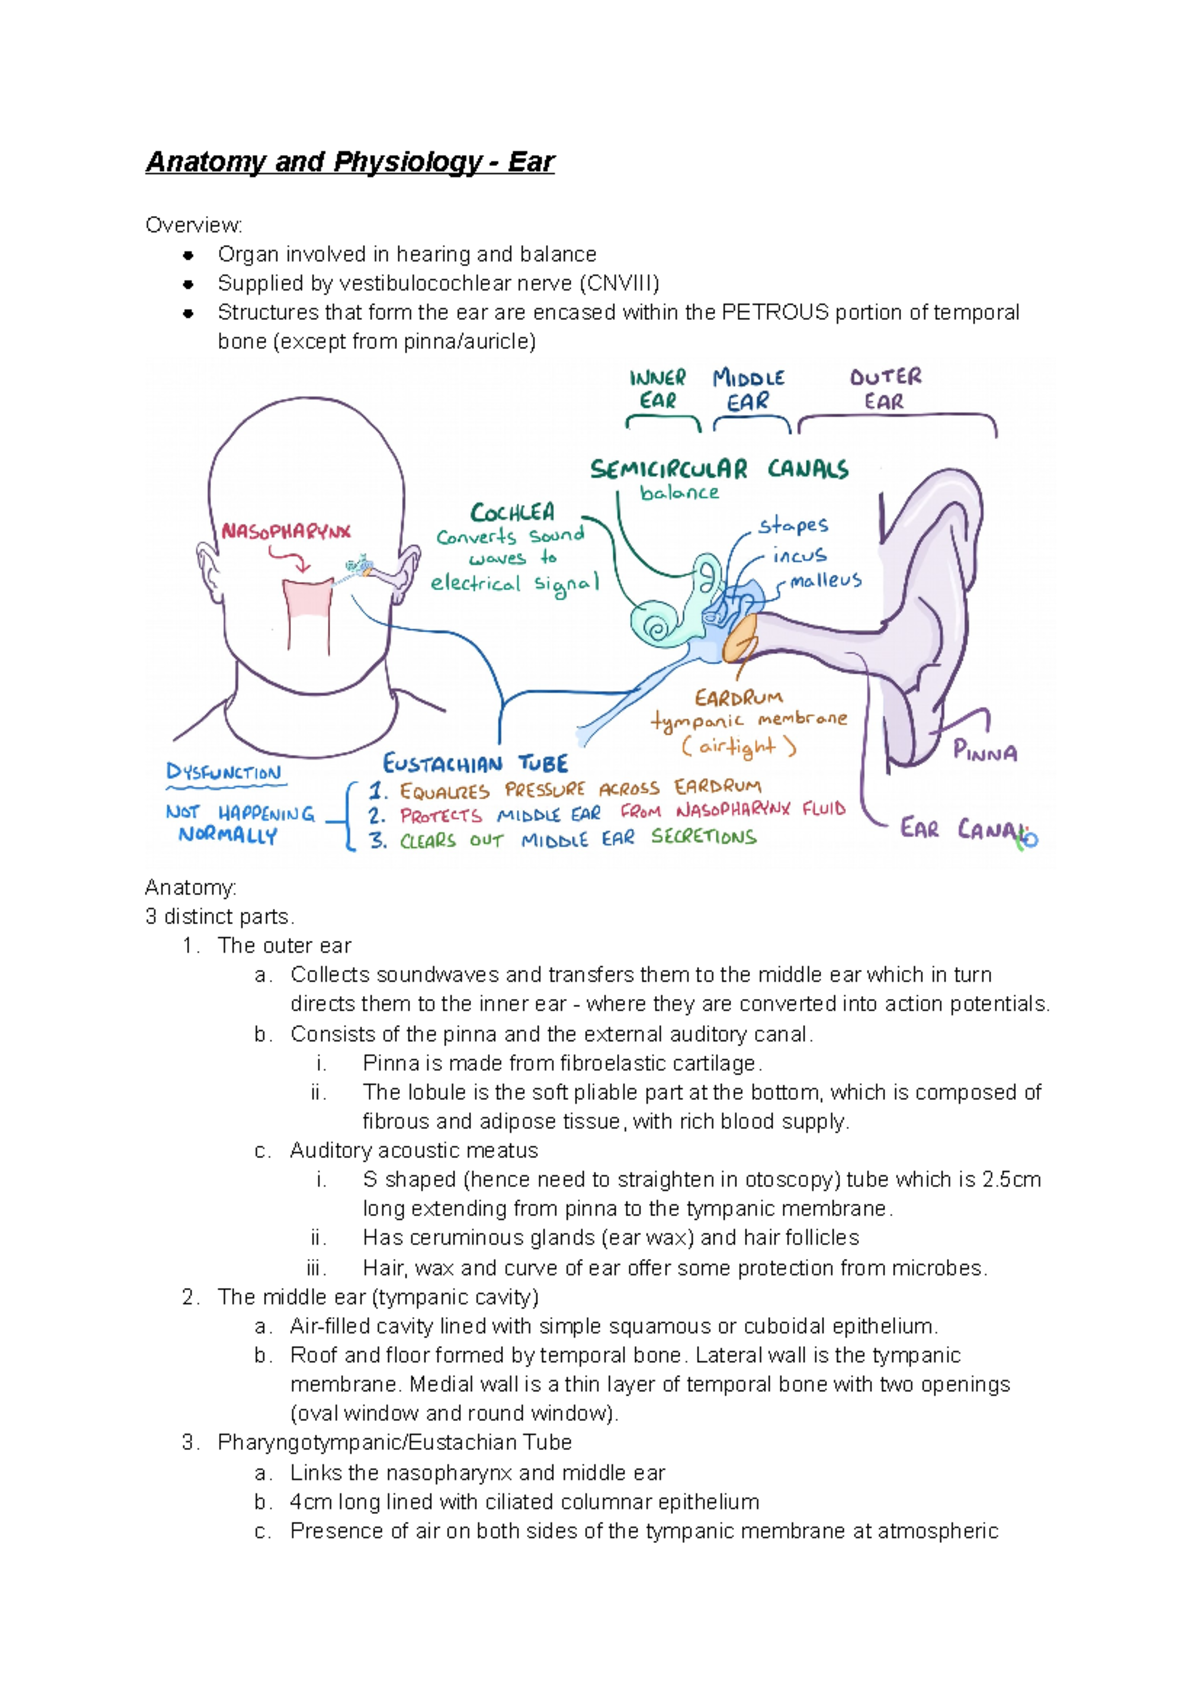 Anatomy and Physiology - Ear
Overview:
● Organ involved in hearing and balance
● Supplied by vestibulocochlear nerve (CNVIII)
● Structures that form the ear are encased within the PETROUS portion of temporal
bone (except from pinna/auricle)
INNER EAR
MIDDLE EAR
OUTER EAR
SEMICIRCULAR CANALS
balance
COCHLEA
Converts sound
waves to
electrical signal
NASOPHARYNX
stapes
incus
malleus
EARDRUM
tympanic membrane
(airtight)
PINNA
EAR CANAL
EUSTACHIAN TUBE
1. EQUALIZES PRESSURE ACROSS EARDRUM
2. PROTECTS MIDDLE EAR FROM NASOPHARYNX FLUID
3. CLEARS OUT MIDDLE EAR SECRETIONS
DYSFUNCTION
NOT HAPPENING
NORMALLY
Anatomy:
3 distinct parts.
1. The outer ear
a. Collects soundwaves and transfers them to the middle ear which in turn
directs them to the inner ear - where they are converted into action potentials.
b. Consists of the pinna and the external auditory canal.
i. Pinna is made from fibroelastic cartilage.
ii. The lobule is the soft pliable part at the bottom, which is composed of
fibrous and adipose tissue, with rich blood supply.
c. Auditory acoustic meatus
i. S shaped (hence need to straighten in otoscopy) tube which is 2.5cm
long extending from pinna to the tympanic membrane.
ii. Has ceruminous glands (ear wax) and hair follicles
iii. Hair, wax and curve of ear offer some protection from microbes.
2. The middle ear (tympanic cavity)
a. Air-filled cavity lined with simple squamous or cuboidal epithelium.
b. Roof and floor formed by temporal bone. Lateral wall is the tympanic
membrane. Medial wall is a thin layer of temporal bone with two openings
(oval window and round window).
3. Pharyngotympanic/Eustachian Tube
a. Links the nasopharynx and middle ear
b. 4cm long lined with ciliated columnar epithelium
c. Presence of air on both sides of the tympanic membrane at atmospheric